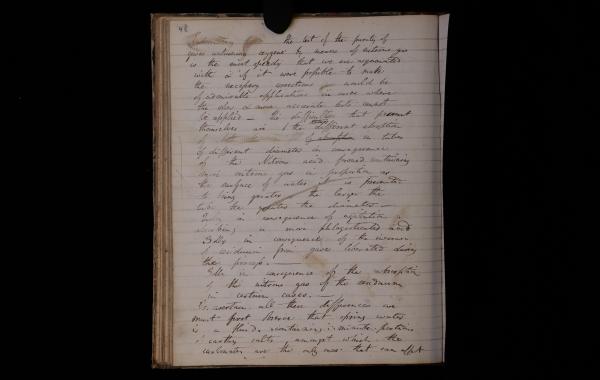 48
the test of the purity of
gases containing oxygen by means of nitrous gas
is the most speedy that we are acquainted
with & if it were possible to make
the necessary corrections would be
of admirable application in cases where
the slow & more accurate tests cannot
be applied — The difficulties that present
themselves are 1 the different
in tubes
of different diameter in consequence
of the Nitrous acid formed
nitrous gas in proportion as
the surface of water it is presented
to being greater the larger the
tube the greater the diameter —
2dly in consequence of agitation
more phlogisticated and
3dly in consequence of the
of residuum from gases liberated during
the process. —
4thly in consequence of the absorption
of the nitrous gas of the residuum
in certain cases. —
To ascertain all these differences we
must first observe that spring water
is a fluid containing minute portions
of earthy salts amongst which the
carbonates are the only ones that can affect